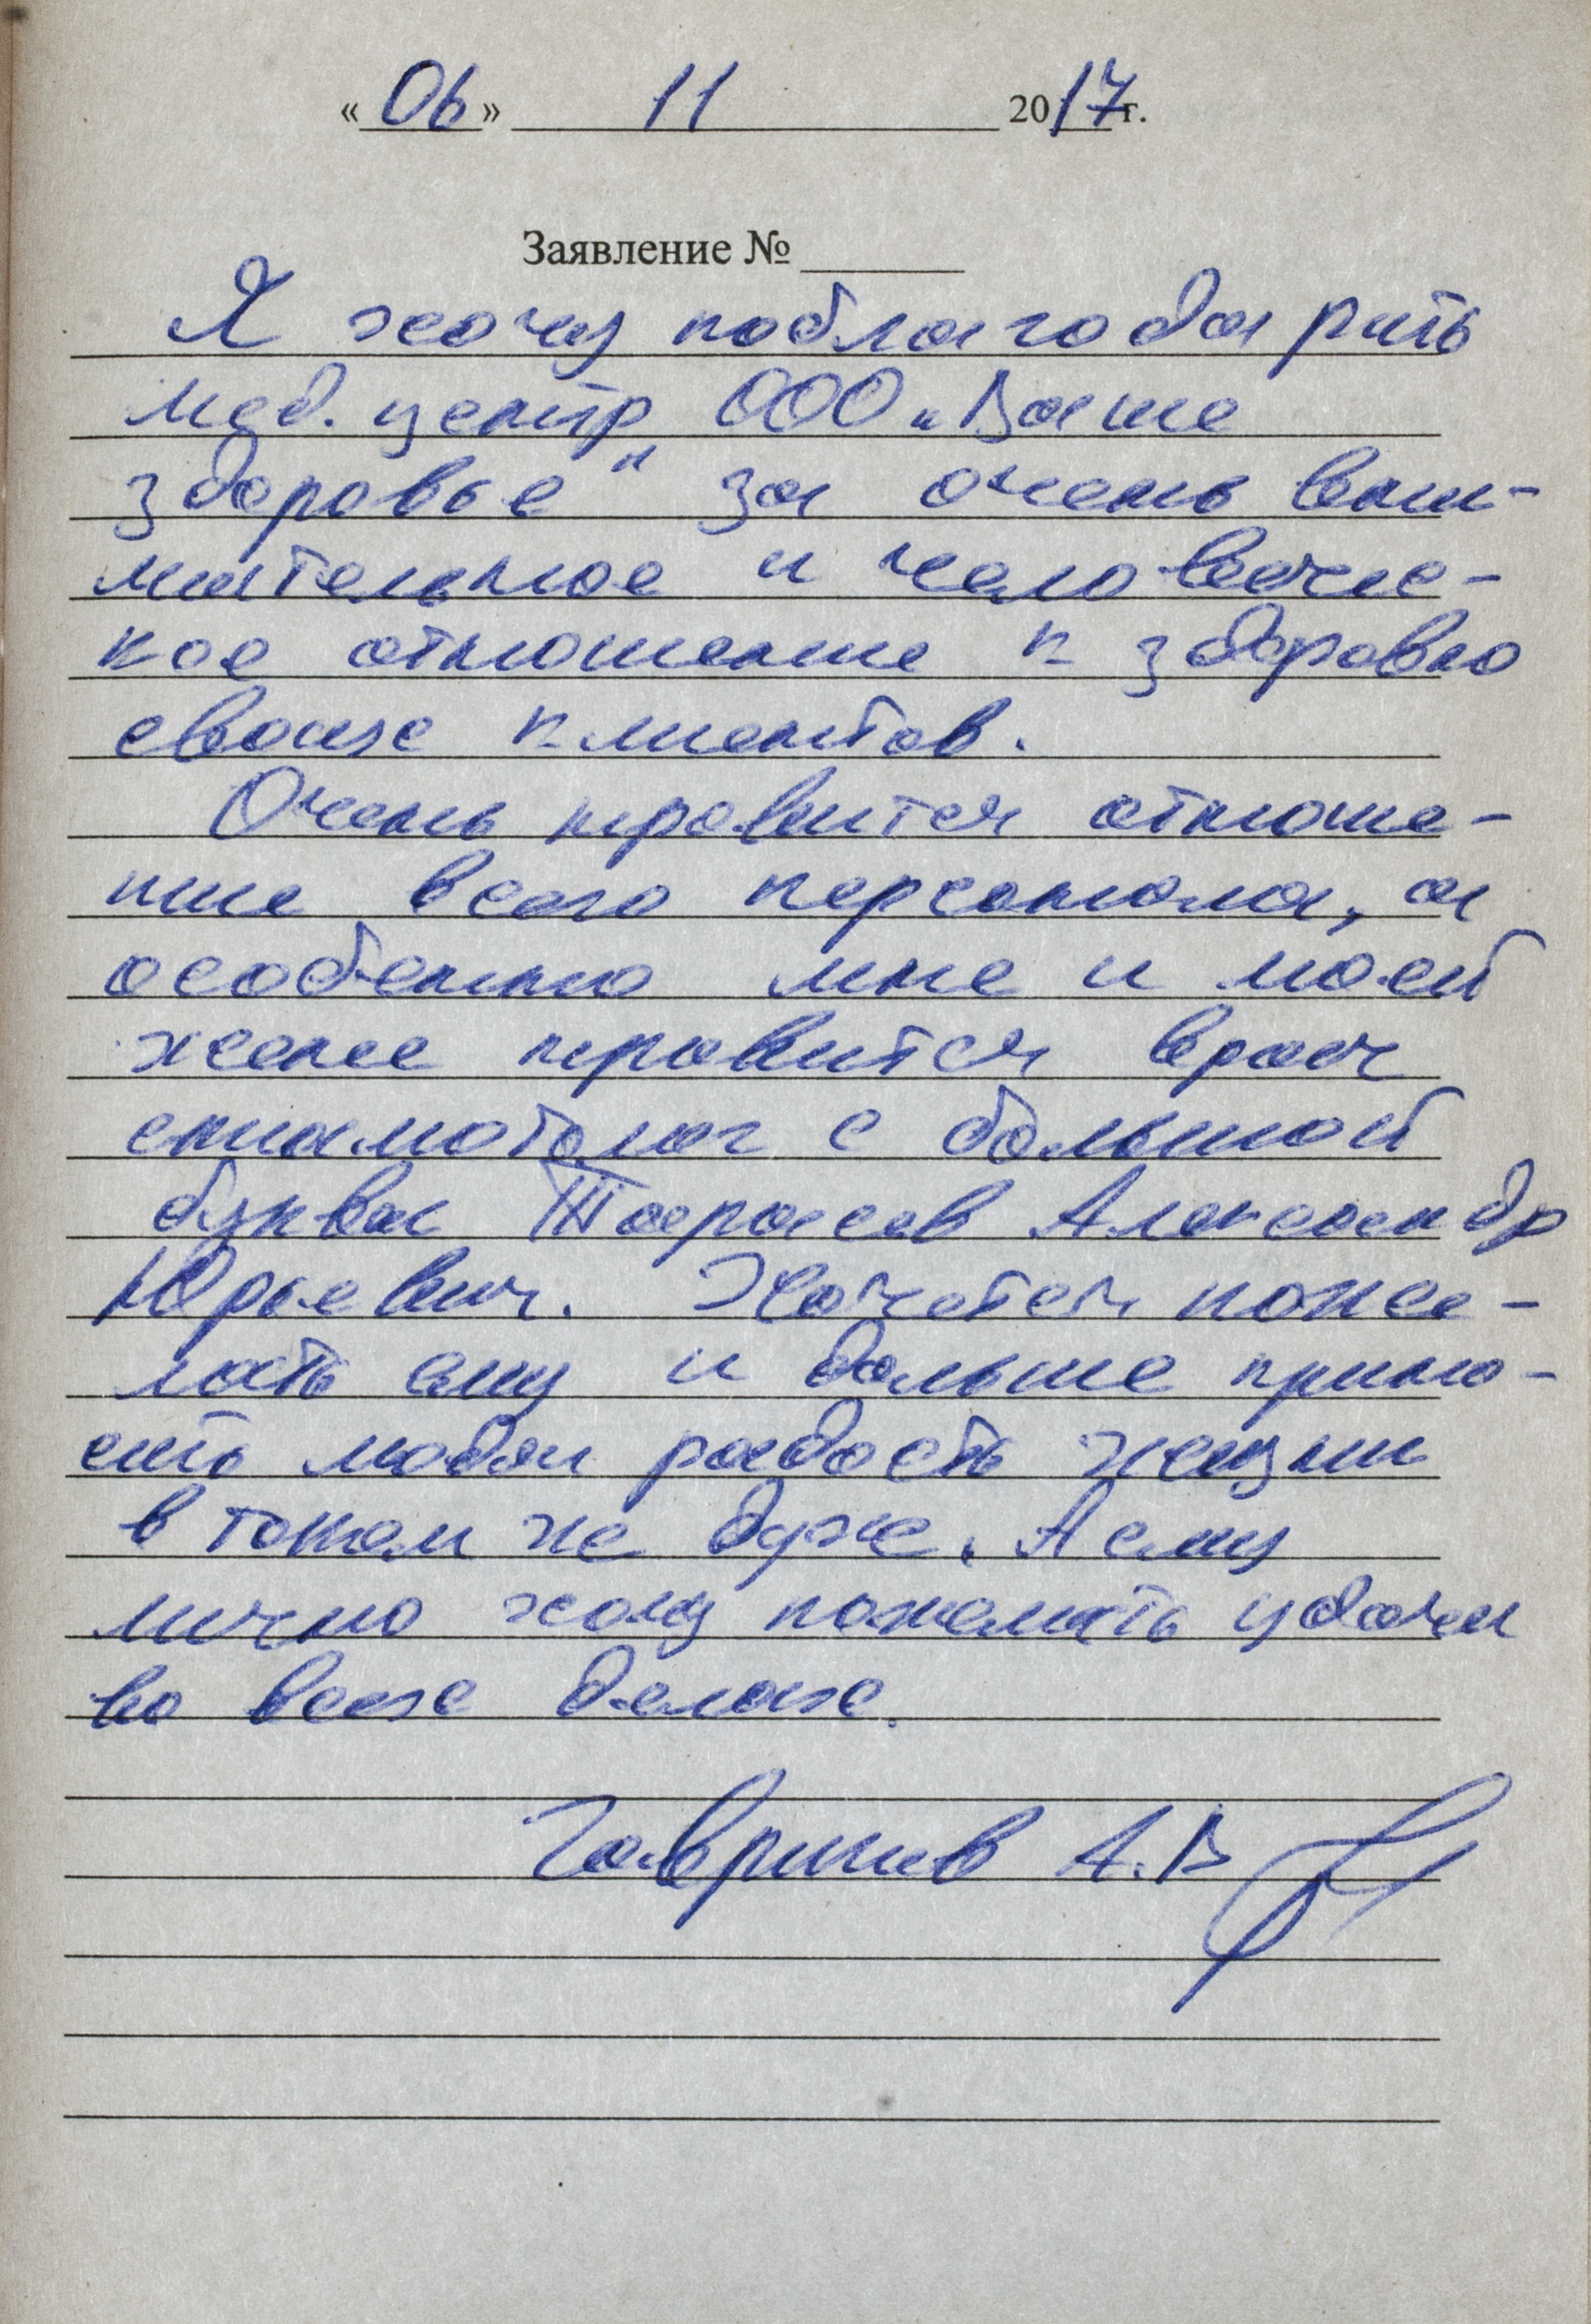 «06» 11 2017г.
Заявление № ______
Я хочу поблагодарить
мед. центр ООО „Ваше
здоровье" за очень вни-
мательное и человечес-
кое отношение к здоровью
своих клиентов.
Очень нравится отноше-
ние всего персонала, а
особенно мне и моей
жене нравится врач
стоматолог с большой
буквы Тарасов Александр
Юрьевич. Хочется поже-
лать ему и дальше прино-
сить людям радость жизни
в таком же духе. А ему
лично хочу пожелать удачи
во всех делах.
Гаврилов А.В